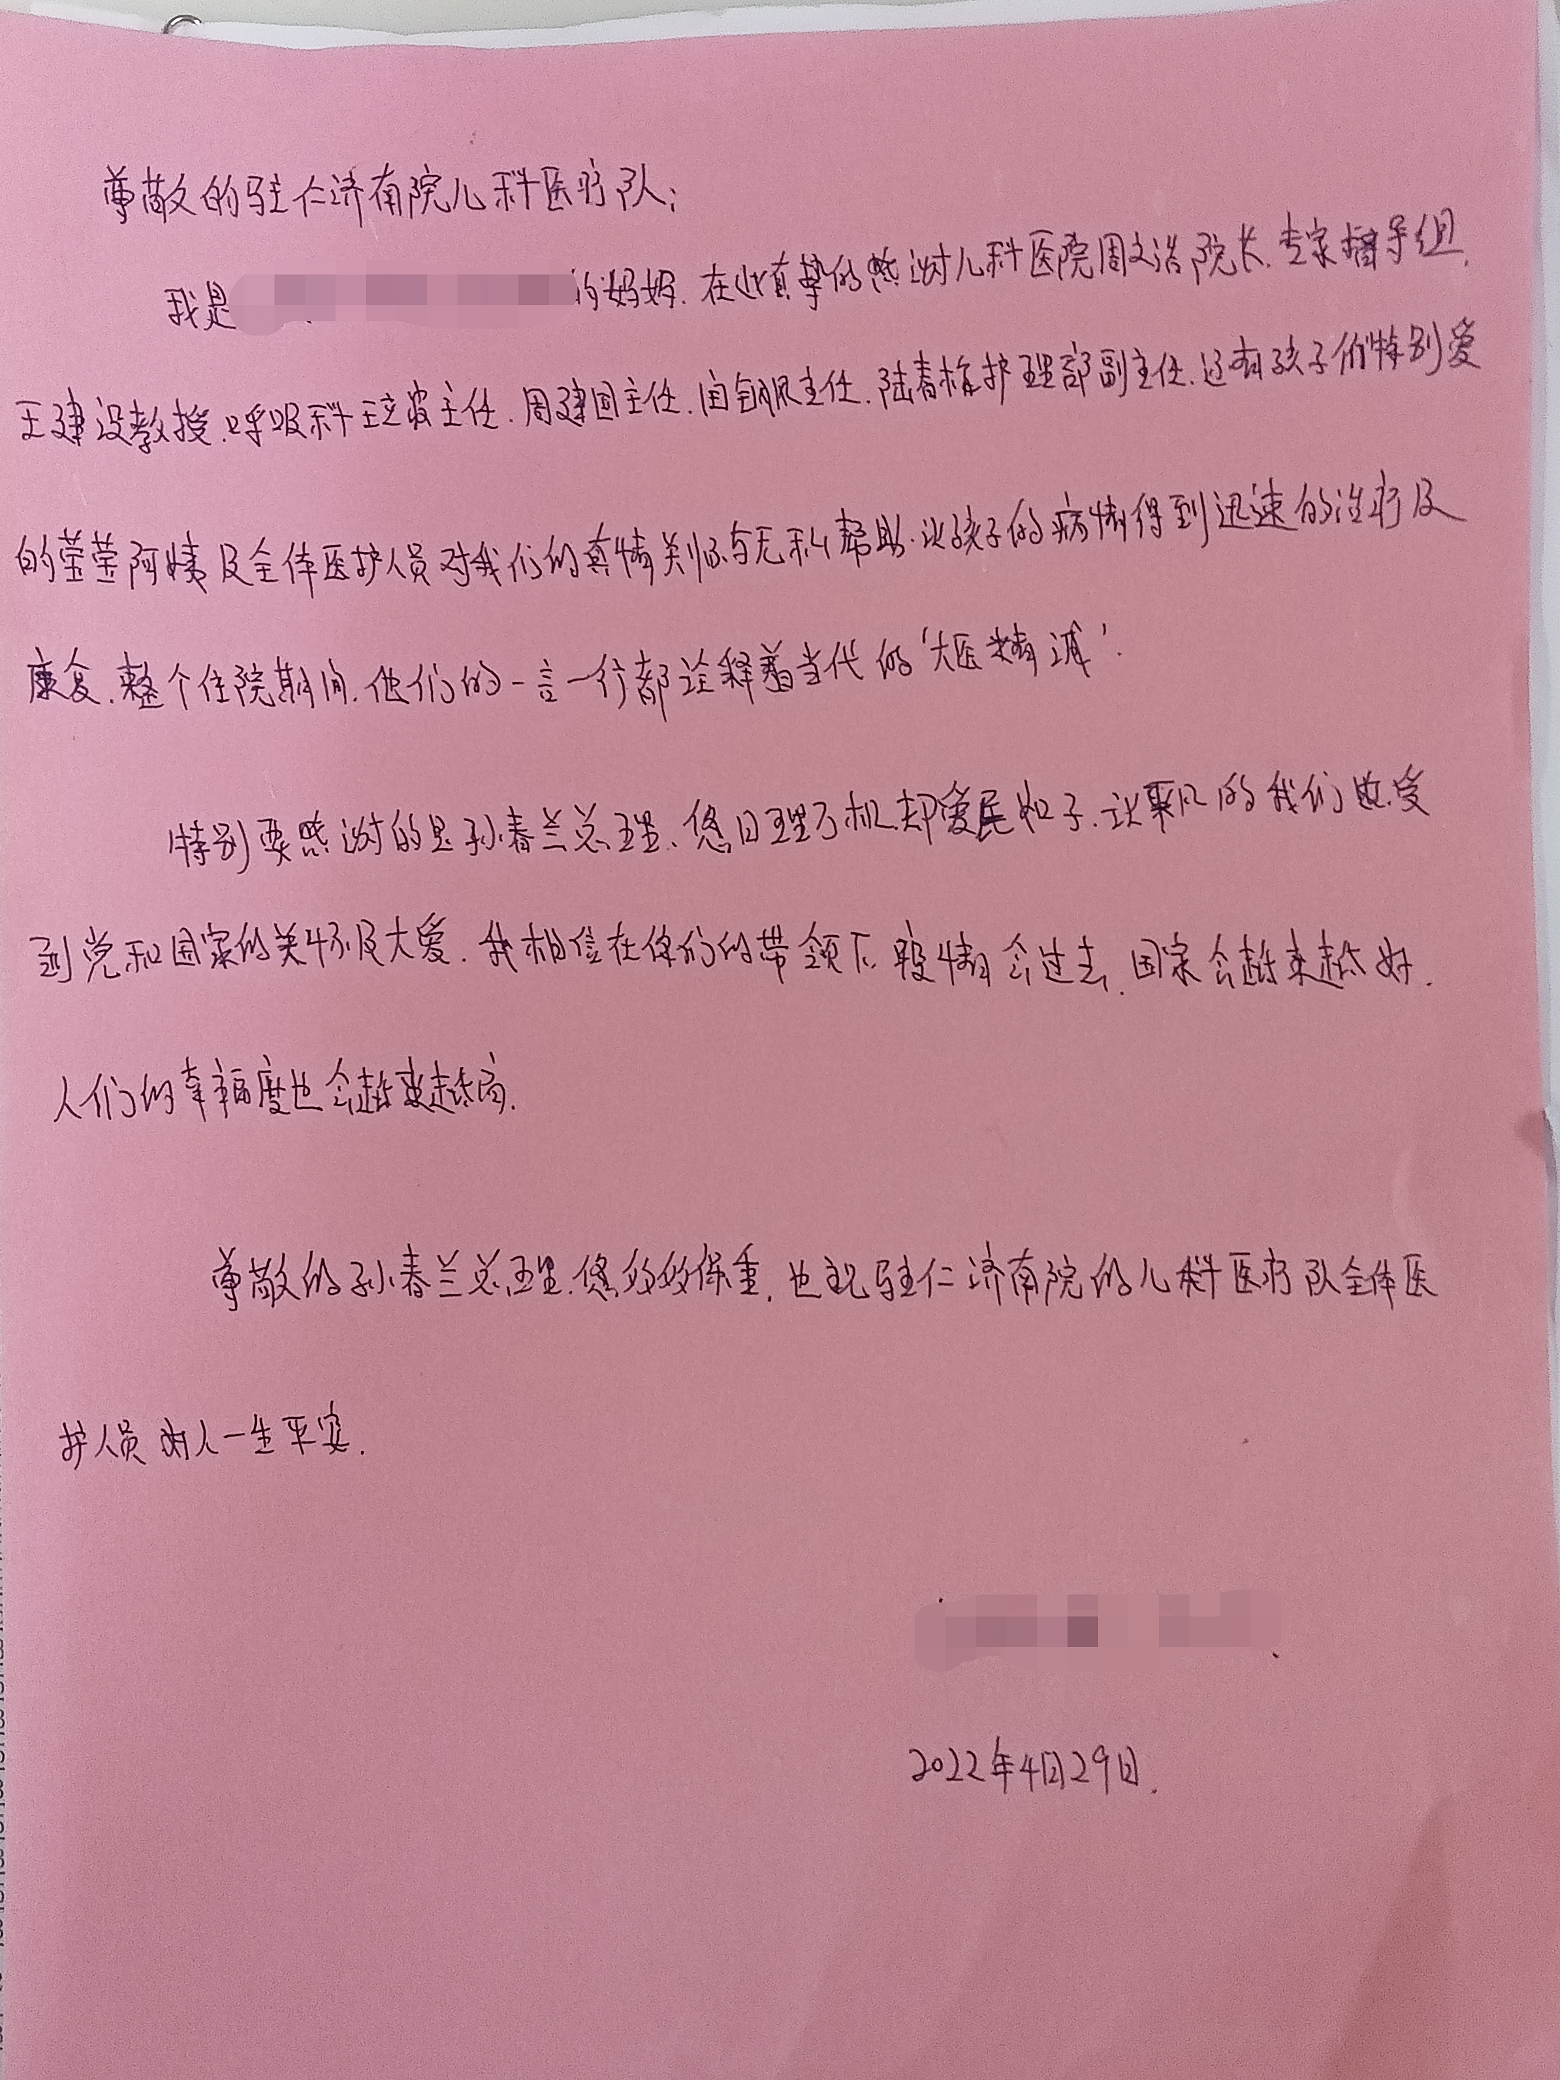 尊敬的驻仁济南院儿科医疗队:
我是 的妈妈.在此真挚的感谢儿科医院周文浩院长.专家指导组.
王建设教授.呼吸科王立波主任.周建国主任. 主任.陆春梅护理部副主任.还有孩子们特别爱
的莹莹阿姨及全体医护人员对我们的真情关怀与无私帮助.让孩子的病情得到迅速的治疗及
康复.整个住院期间.他们的一言一行都诠释着当代的'大医精诚'.
特别要感谢的是孙春兰总理.您日理万机.却爱民如子.让平凡的我们感受
到党和国家的关怀及大爱.我相信在你们的带领下.疫情会过去.国家会越来越好.
人们的幸福度也会越来越高.
尊敬的孙春兰总理.您多多保重.也祝驻仁济南院的儿科医疗队全体医
护人员好人一生平安.
2022年4月29日.